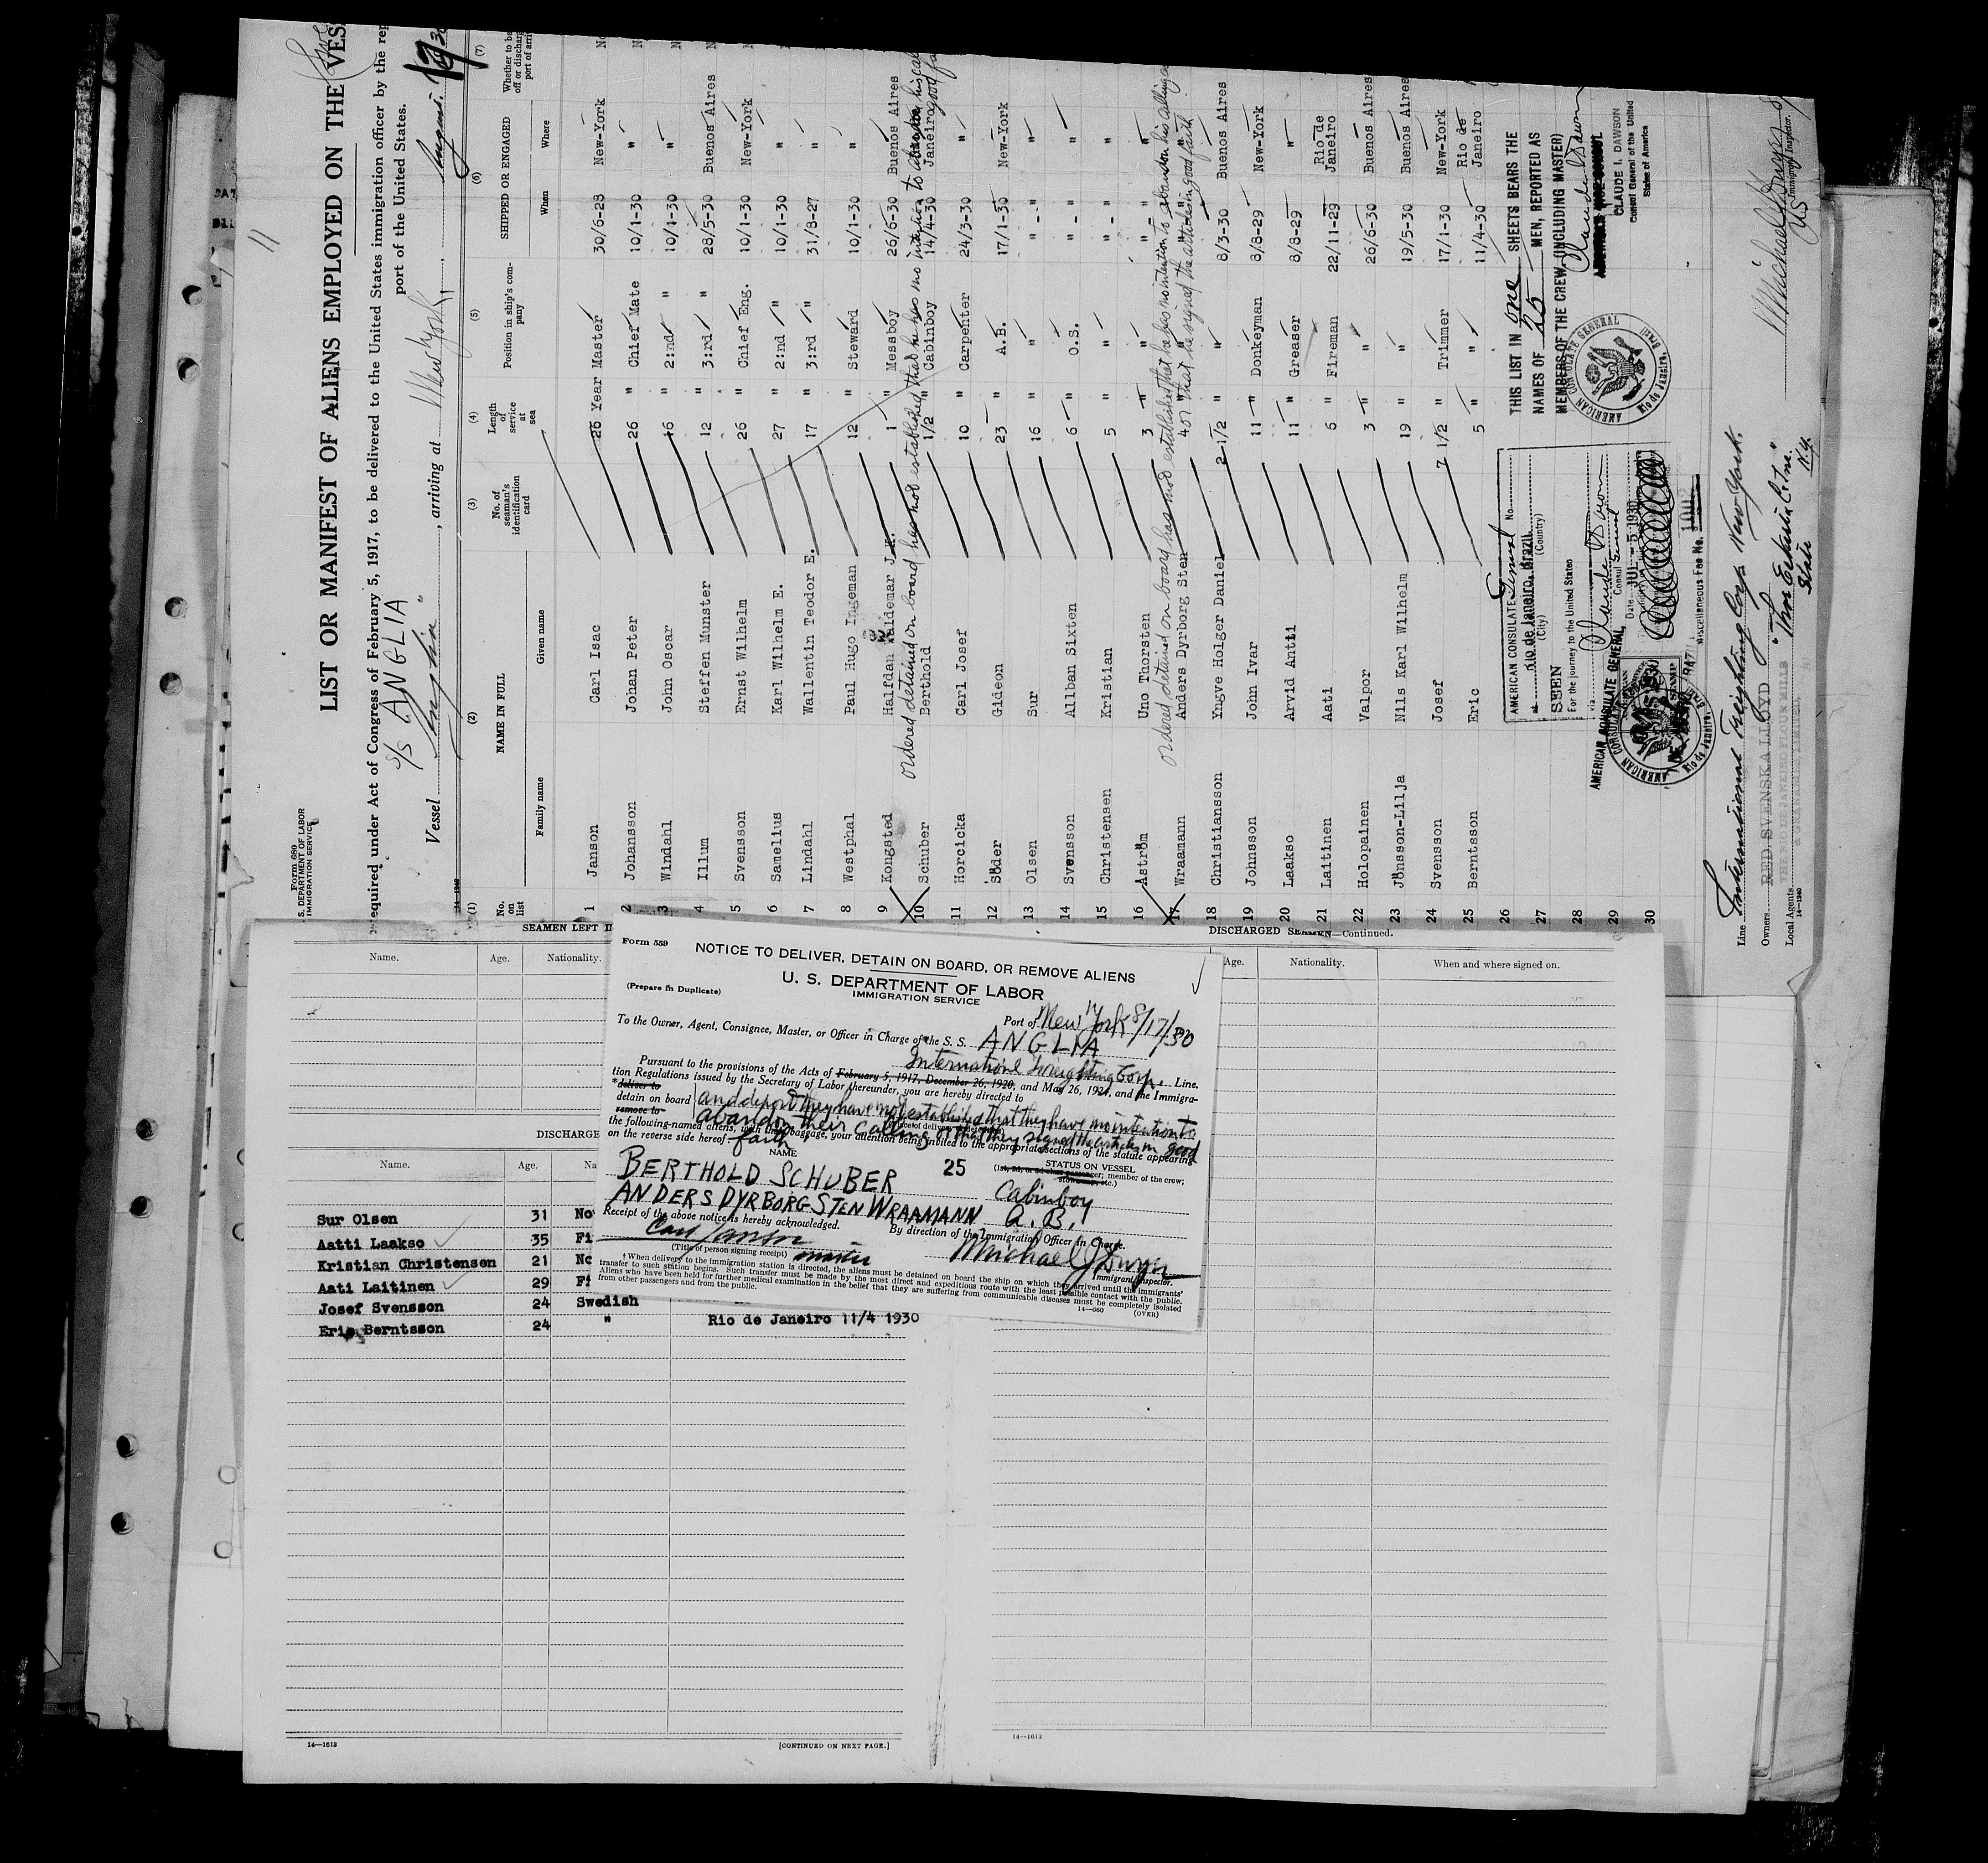 11
Form 689
S. DEPARTMENT OF LABOR
IMMIGRATION SERVICE
LIST OR MANIFEST OF ALIENS EMPLOYED ON THE VES
equired under Act of Congress of February 5, 1917, to be delivered to the United States immigration officer by the rep
port of the United States.
S/S ANGLIA
Vessel "Anglia", arriving at New York, August 17 30
(1) (2) (3) (4) (5) (6) (7)
No. on list
NAME IN FULL
Family name Given name
No. of seaman's identification card
Length of service at sea
Position in ship's company
SHIPPED OR ENGAGED
When Where
Whether to be
off or discharg
port of arri
1 Janson Carl Isac 26 Year Master 30/6-28 New-York
2 Johansson Johan Peter 26 " Chief Mate 10/1-30 "
3 Windahl John Oscar 16 " 2:nd " 10/1-30 "
4 Illum Steffen Munster 12 " 3:rd " 28/5-30 Buenos Aires
5 Svensson Ernst Wilhelm 26 " Chief Eng. 10/1-30 New-York
6 Samelius Karl Wilhelm E. 27 " 2:nd " 10/1-30 "
7 Lindahl Wallentin Teodor E. 17 " 3:rd " 31/8-27 "
8 Westphal Paul Hugo Ingeman 12 " Steward 10/1-30 "
9 Kongsted Halfdan Valdemar J.K. 1 " Messboy 26/6-30 Buenos Aires
ordered detained on board has not established that he has no intention to abandon his cal
10 Schuber Berthold 1/2 " Cabinboy 14/4-30 Janeiro good fa
11 Horcicka Carl Josef 10 " Carpenter 24/3-30 "
12 Söder Gideon 23 " A.B. 17/1-30 New-York
13 Olsen Sur 16 " " " - " "
14 Svensson Allban Sixten 6 " O.S. " - " "
15 Christensen Kristian 5 " " " - " "
16 Aström Uno Thorsten 3 " " " - " "
ordered detained on board has not established that he has no intention to abandon his calling
or that he signed the articles in good faith
17 Wraamann Anders Dyrborg Sten
18 Christiansson Yngve Holger Daniel 2 1/2 " " 8/3-30 Buenos Aires
19 Johnsson John Ivar 11 " Donkeyman 8/8-29 New-York
20 Laakso Arvid Antti 11 " Greaser 8/8-29 "
21 Laitinen Aati 6 " Fireman 22/11-29 Rio de Janeiro
22 Holopainen Valpor 3 " " 26/6-30 Buenos Aires
23 Jönsson-Lilja Nils Karl Wilhelm 19 " " 19/5-30 Buenos Aires
24 Svensson Josef 7 1/2 " Trimmer 17/1-30 New-York
25 Berntsson Eric 5 " " 11/4-30 Rio de Janeiro
26
27
28
29
30
AMERICAN CONSULATE General No.
at Rio de Janeiro, Brazil
(City) (Country)
SEEN
For the journey to the United States
via
Consul General
Date JUL - 5 1930
AMERICAN CONSULATE GENERAL
Rio de Janeiro, Brazil.
Miscellaneous Fee No. 1002
THIS LIST IN one SHEETS BEARS THE
NAMES OF 25 MEN, REPORTED AS
MEMBERS OF THE CREW, (INCLUDING MASTER)
AMERICAN CONSULATE GENERAL
Rio de Janeiro, Brazil
AMERICAN VICE CONSUL
CLAUDE I. DAWSON
Consul General of the United
States of America
Line International Freighting Corp. New York.
Owners RED. SVENSKA LLOYD
THE RIO DE JANEIRO FLOUR MILLS
& GRANARIES, LIMITED.
Local Agents
14-1240
State N.Y.
Michael J Dwyer
US Immigrant Inspector.
SEAMEN LEFT I
DISCHARGED SEAMEN—Continued.
Name. Age. Nationality.
Age. Nationality. When and where signed on.
DISCHARGE
Name. Age. Na
Sur Olsen 31 No
Aatti Laakso 35 Fi
Kristian Christensen 21 No
Aati Laitinen 29 Fi
Josef Svensson 24 Swedish
Eric Berntsson 24 " Rio de Janeiro 11/4 1930
14—1613
[CONTINUED ON NEXT PAGE.]
14—1613
Form 559
NOTICE TO DELIVER, DETAIN ON BOARD, OR REMOVE ALIENS
U. S. DEPARTMENT OF LABOR
IMMIGRATION SERVICE
(Prepare in Duplicate)
Port of New York 8/17/30
To the Owner, Agent, Consignee, Master, or Officer in Charge of the S. S. ANGLIA
International Freighting Corp. Line.
Pursuant to the provisions of the Acts of February 5, 1917, December 26, 1920, and May 26, 1924, and the Immigra-
tion Regulations issued by the Secretary of Labor thereunder, you are hereby directed to
*deliver to
detain on board
remove to
and deport they have not established that they have no intention to
abandon their calling or that they signed the articles in good
faith
the following-named aliens, with their baggage, your attention being invited to the appropriate sections of the statute appearing
on the reverse side hereof
NAME
STATUS ON VESSEL
(1st, 2d, or 3d class passenger; member of the crew; stowaway, etc.)
BERTHOLD SCHUBER 25 Cabinboy
ANDERS DYRBORG STEN WRAAMANN A.B.
Receipt of the above notice is hereby acknowledged.
By direction of the Immigration Officer in Charge.
Carl Janson
(Title of person signing receipt) master
Michael J Dwyer
Immigrant Inspector.
† When delivery to the immigration station is directed, the aliens must be detained on board the ship on which they arrived until the immigrants'
transfer to such station begins. Such transfer must be made by the most direct and expeditious route with the least possible contact with the public.
Aliens who have been held for further medical examination in the belief that they are suffering from communicable diseases must be completely isolated
from other passengers and from the public.
14—560
(OVER)